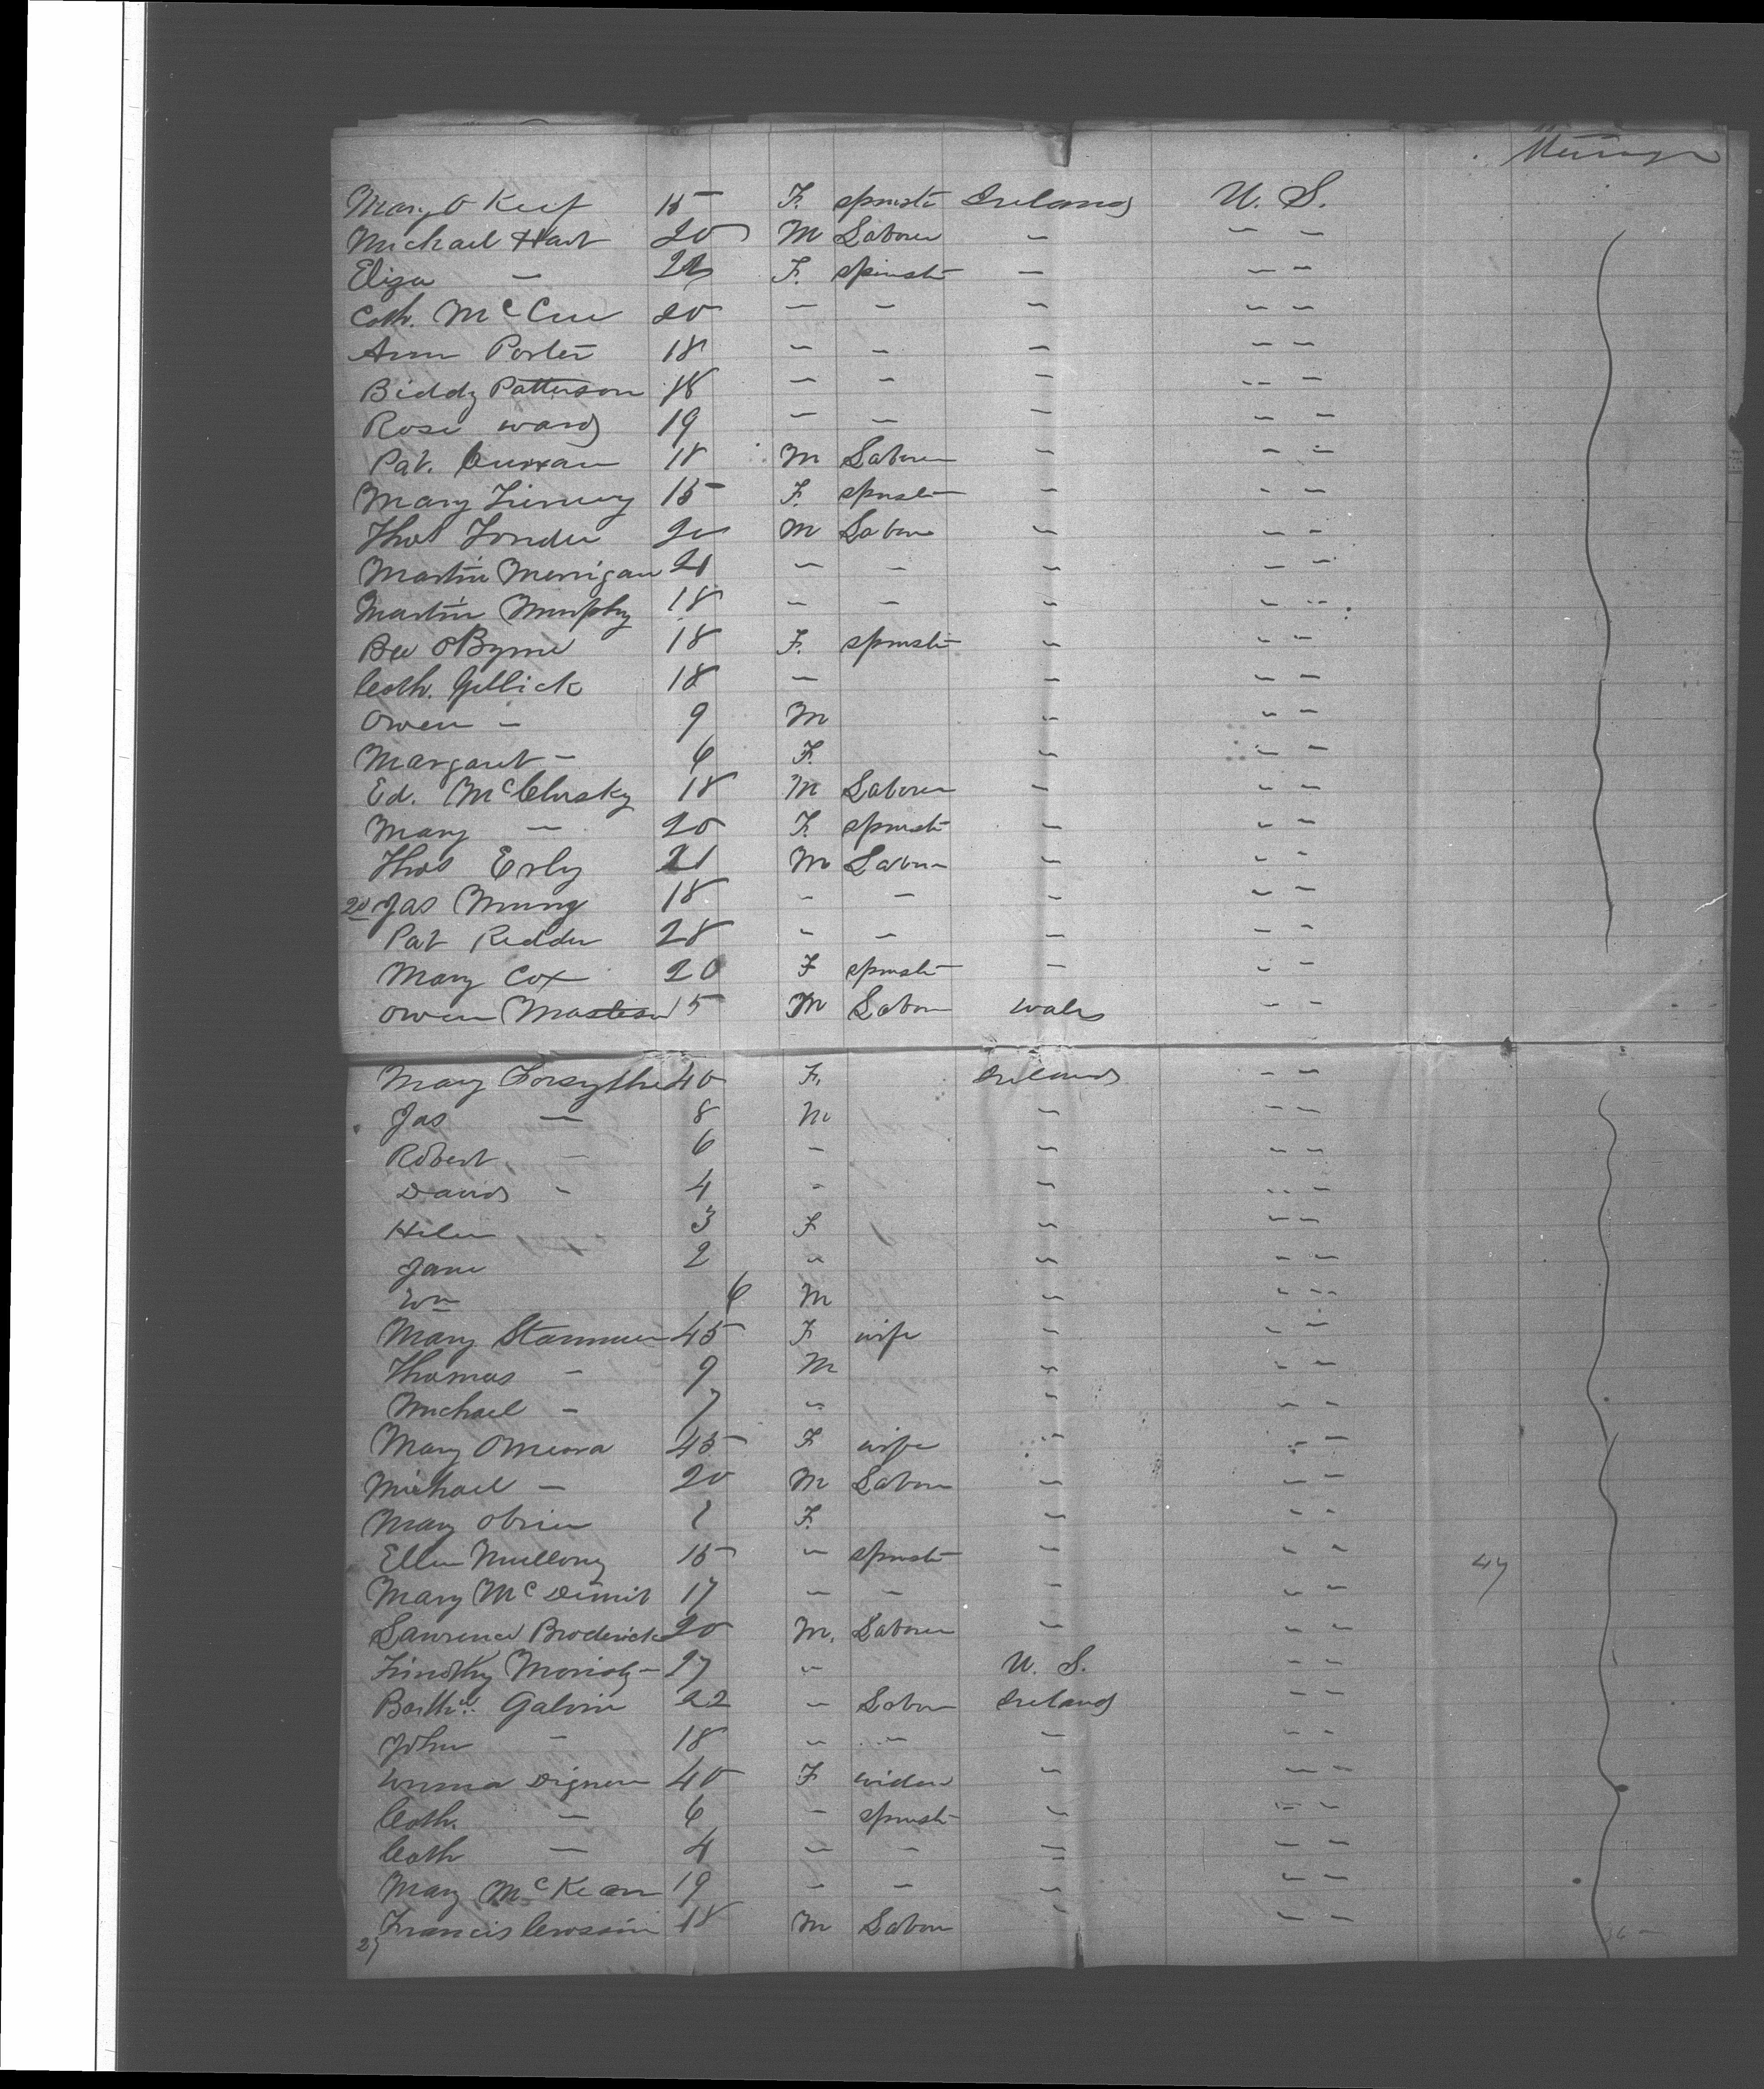 Mary O Keef 15 F. spinstr Ireland U. S.
Michael Hart 20 M Laborer - - -
Eliza - 22 F. spinstr - - -
Cath. McCue 20 - - - - -
Ann Porter 18 - - - - -
Biddy Patterson 18 - - - - -
Rose Ward 19 - - - - -
Pat. Curran 18 M Laborer - - -
Mary 15 F. spinstr - - -
Thos 20 M Labor - - -
Martin Merrigan 21 - - - - -
Martin Murphy 18 - - - - -
Bee OByrne 18 F. spinstr - - -
Cath. Gellick 18 - - - -
Owen - 9 M - - -
Margaret - 6 F. - - -
Ed. McClusky 18 M Laborer - - -
Mary - 20 F. spinstr - - -
Thos Erly 21 M Labor - - -
20 Jas 18 - - - - -
Pat Redden 28 - - - - -
Mary Cox 20 F spinstr - - -
Owen Masterson 15 M Labor Wales - -
Mary Forsythe 40 F. Ireland - -
Jas - 8 M - - -
Robert - 6 - - - -
David - 4 - - - -
Helen 3 F - - -
Jane 2 - - - -
Wm 6 M - - -
Mary 45 F wife - - -
Thomas - 9 M - - -
Michael - 7 - - - -
Mary OMeara 45 F wife - - -
Michael - 20 M Labor - - -
Mary Obrien 1 F. - - -
Ellen Mullony 15 - spinstr - - - 47
Mary McDermit 17 - - - - -
Lawrence Broderick 20 M. Laborer - - -
Timothy Moriaty 27 - U. S. - -
Barthw. Galvin 22 - Labor Ireland - -
John - 18 - - - - -
Dignen 40 F widow - - -
Cath. - 6 - spinstr - - -
Cath - 4 - - - - -
Mary McKeon 19 - - - - -
27 Francis Crossin 18 M Labor - - -